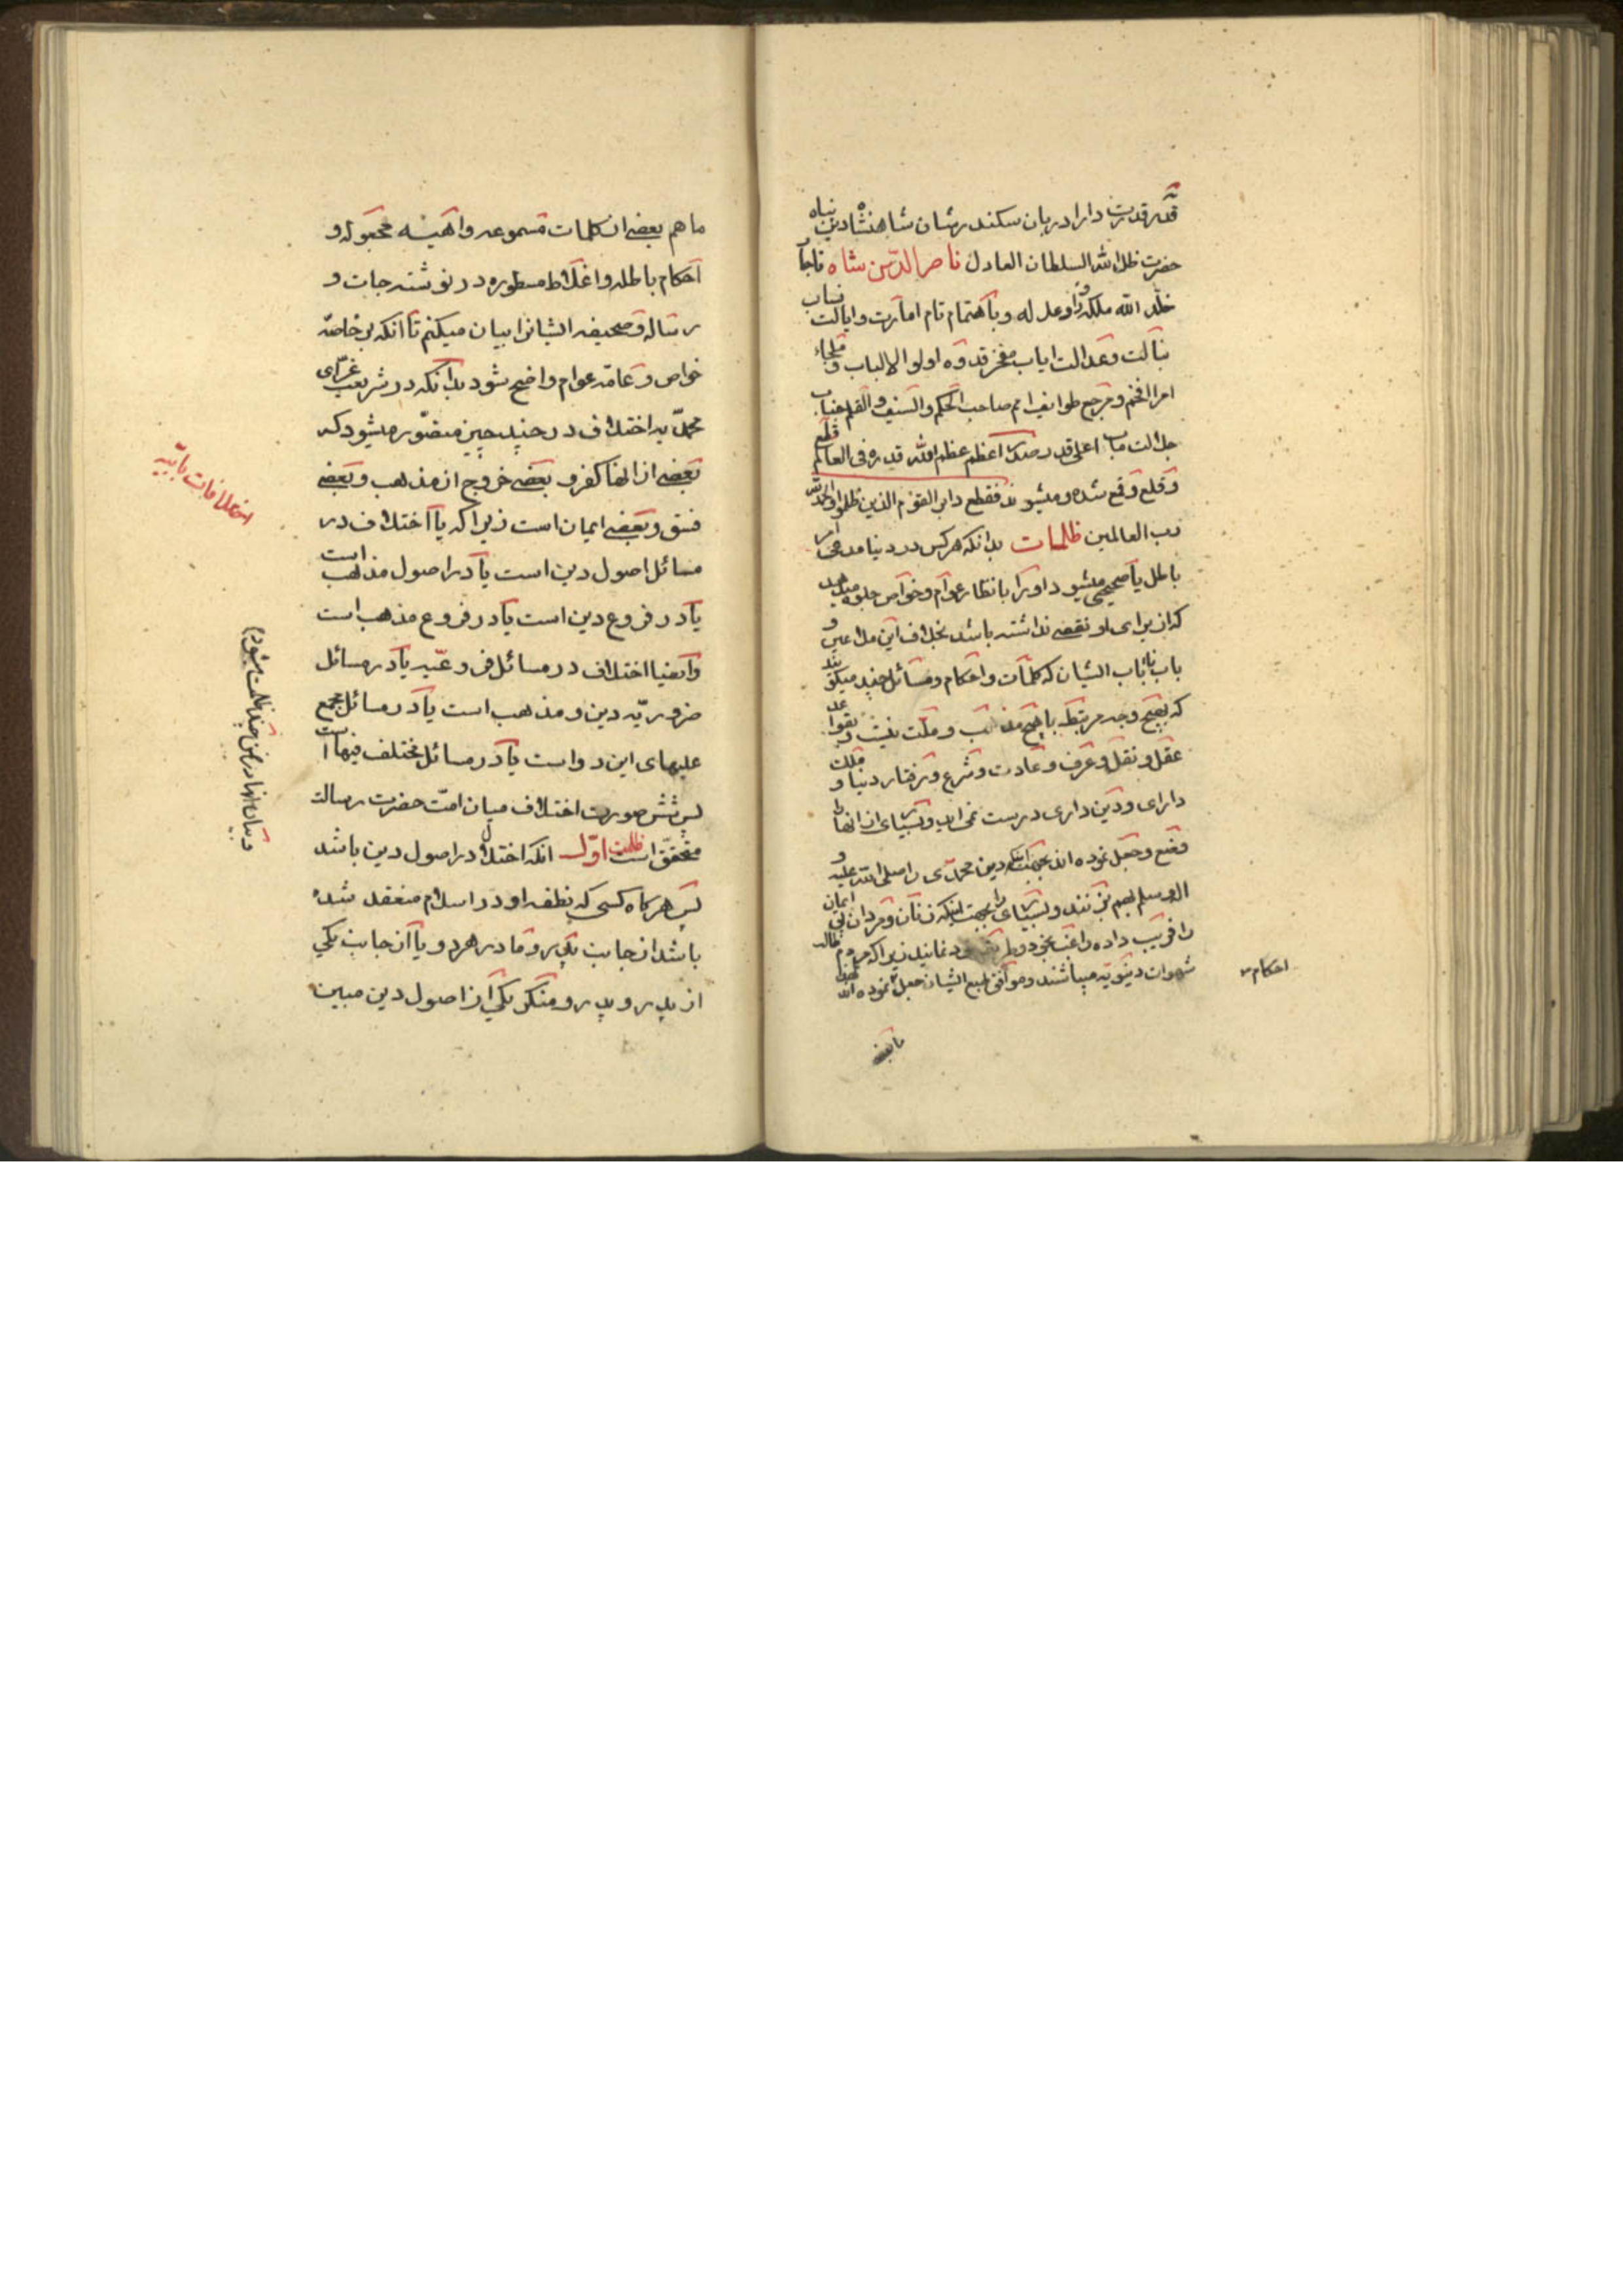 قدر قدرت دارا دربان سکندر شان شاهنشاه دین پناه
حضرت ظل الله السلطان العادل ناصر الدین شاه قاجار
خلد الله ملکه و زاد عدله و باهتمام تام امارت و ایالت
بنالت و عدالت ایاب مفخر قدوه اولو الالباب و ملجاء
امرا افخم و مرجع طوایف امم صاحب الحکم و السیف و القلم جناب
جلالت مآب اعلی قدر صدر اعظم عظم الله قدره فی العالم قلع
و قلع و قمع شده و میشوند فقطع دابر القوم الذین ظلموا و الحمد لله
رب العالمین ظلمات بدانکه هر کس در دنیا مدعی امر
باطل یا صحیحی میشود او را بانظار عوام و خواص جلوه میدهد
که از برای او نقضی نداشته باشد بخلاف این ملاعین و
باب نائباب ایشان که کلمات و احکام و مسائل چند میگویند
که بهیچ وجه مربتطه با هیچ مذهب و ملت نیست و بقواعد
عقل و نقل و عرف و عادت و شرع و رفتار دنیا و ملک
دارای و دین داری درست نمی‌اید و بسیای از انها را
وضع و جعل نموده اند بجهت انکه دین محمدی را صلی الله علیه و
اله و سلم بهم بزنند و بسیای را بجهت اینکه زنان و مردان بی ایمان
را فریب داده راغب بخود و خود نمایند زیرا که مردم طالب
شهوات دنیویه میباشند و موافق طبع ایشان جعل نموده اند
احکام
تا بعضی
ما هم بعضی از کلمات مسموعه واهیه مجعوله و
احکام باطله و اغلاط مسطوره در نوشته‌جات و
رساله و صحیفه ایشانرا بیان میکنم تا انکه بر خاصه
خواص و عامه عوام واضح شود بدانکه در شریعت غرای
محمدیه اختلاف در چند چیز متصور میشود که
بعضی از انها کفر و بعضی خروج از مذهب و بعضی
فسق و بعضی ایمان است زیرا که یا اختلاف در
مسائل اصول دین است یا در اصول مذهب است
یا در فروع دین است یا در فروع مذهب است
و ایضا اختلاف در مسائل فروعیه یا در مسائل
ضروریه دین و مذهب است یا در مسائل مجمع
علیهای این دو است یا در مسائل مختلف فیها است
پس شش صورت اختلاف میان امت حضرت رسالت
متحقق است ظلمت اول انکه اختلاف در اصول دین باشد
پس هرگاه کسی که نطفه او در اسلام منعقد شده
باشد از جانب پدر و مادر هر دو یا از جانب یکی
از پدر و پدر و منکر یکی از اصول دین مبین
اختلافات بابیه
و بیان انها در ضمن چند ظلمت میشود